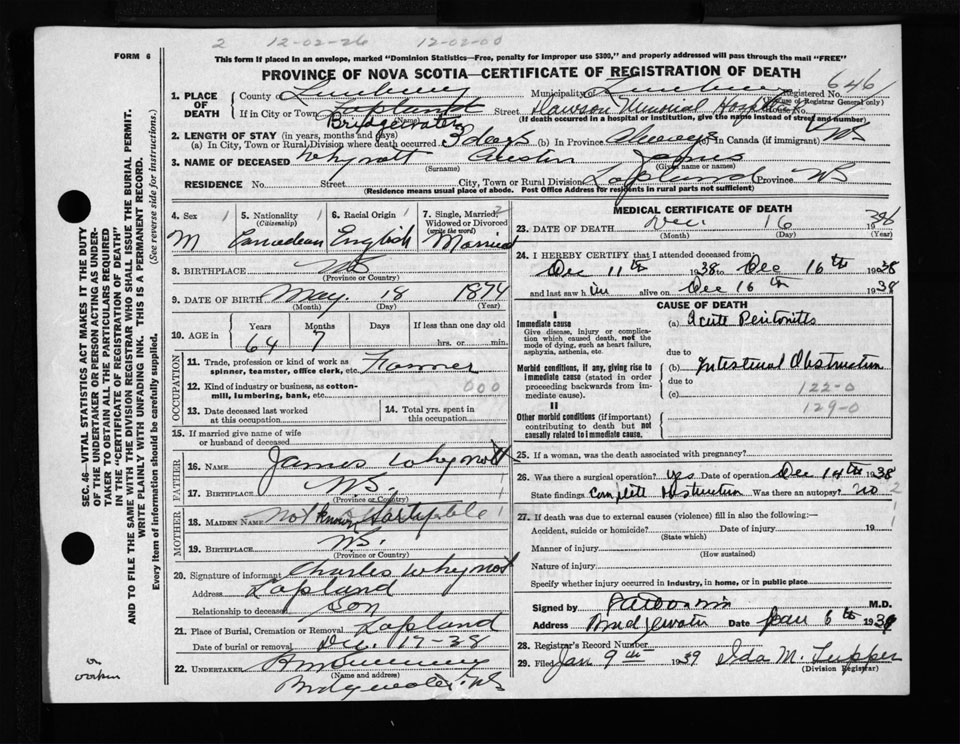 2 12-02-26 12-02-00
FORM 6
This form if placed in an envelope, marked "Dominion Statistics—Free, penalty for improper use $300," and properly addressed will pass through the mail "FREE"
PROVINCE OF NOVA SCOTIA—CERTIFICATE OF REGISTRATION OF DEATH
646
1. PLACE OF DEATH
County of Lunenburg Municipality of Lunenburg Registered No.
(For use of Registrar General only)
If in City or Town Lapland Bridgewater Street Dawson Memorial Hospital
(If death occurred in a hospital or institution, give the name instead of street and number)
2. LENGTH OF STAY (in years, months and days)
(a) In City, Town or Rural Division where death occurred 3 days (b) In Province Always (c) In Canada (if immigrant) NS
3. NAME OF DECEASED Whynott Austin James
(Surname) (Given name or names)
RESIDENCE No. Street City, Town or Rural Division Lapland Province NS
(Residence means usual place of abode. Post Office Address for residents in rural parts not sufficient)
4. Sex M
5. Nationality (Citizenship) Canadian
6. Racial Origin English
7. Single, Married, Widowed or Divorced (write the word) Married
8. BIRTHPLACE NS
(Province or Country)
9. DATE OF BIRTH May 18 1874
(Month) (Day) (Year)
10. AGE in Years Months Days If less than one day old
64 7 hrs. or min.
OCCUPATION
11. Trade, profession or kind of work as spinner, teamster, office clerk, etc. Farmer
12. Kind of industry or business, as cotton-mill, lumbering, bank, etc. 000
13. Date deceased last worked at this occupation
14. Total yrs. spent in this occupation
15. If married give name of wife or husband of deceased
FATHER
16. NAME James Whynott
17. BIRTHPLACE N.S.
(Province or Country)
MOTHER
18. MAIDEN NAME Not known
19. BIRTHPLACE N.S.
(Province or Country)
20. Signature of informant Charles Whynott
Address Lapland
Relationship to deceased Son
21. Place of Burial, Cremation or Removal Lapland
Date of burial or removal Dec. 17-38
22. UNDERTAKER
(Name and address)
Bridgewater, NS
MEDICAL CERTIFICATE OF DEATH
23. DATE OF DEATH Dec. 16 1938
(Month) (Day) (Year)
24. I HEREBY CERTIFY that I attended deceased from:
Dec 11th 1938 to Dec 16th 1938
and last saw him alive on Dec 16th 1938
CAUSE OF DEATH
I
Immediate cause
Give disease, injury or complication which caused death, not the mode of dying, such as heart failure, asphyxia, asthenia, etc.
(a) Acute Peritonitis
due to
Morbid conditions, if any, giving rise to immediate cause (stated in order proceeding backwards from immediate cause).
(b) Intestinal Obstruction
due to
(c) 122-0
129-0
II
Other morbid conditions (if important) contributing to death but not causally related to immediate cause.
25. If a woman, was the death associated with pregnancy?
26. Was there a surgical operation? yes Date of operation Dec 14th 1938
State findings Complete Obstruction Was there an autopsy? no
27. If death was due to external causes (violence) fill in also the following:—
Accident, suicide or homicide? Date of injury 19
(State which)
Manner of injury
(How sustained)
Nature of injury
Specify whether injury occurred in industry, in home, or in public place
Signed by M.D.
Address Bridgewater Date Jan 6th 1939
28. Registrar's Record Number
29. Filed Jan 9th 1939 Ida M. Tupper
(Division Registrar)
SEC. 46—VITAL STATISTICS ACT MAKES IT THE DUTY
OF THE UNDERTAKER OR PERSON ACTING AS UNDER-
TAKER TO OBTAIN ALL THE PARTICULARS REQUIRED
IN THE "CERTIFICATE OF REGISTRATION OF DEATH"
AND TO FILE THE SAME WITH THE DIVISION REGISTRAR WHO SHALL ISSUE THE BURIAL PERMIT.
WRITE PLAINLY WITH UNFADING INK. THIS IS A PERMANENT RECORD.
Every item of information should be carefully supplied. (See reverse side for instructions.)